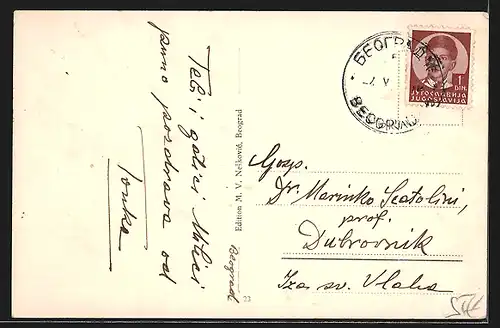 Tebi i gatici Milici
puno pozdrava od
Tonka
Edition M. V. Nešković, Beograd
Beograd
23
БЕОГРАД
7 V
BEOGRAD
1
DIN.
ЈУГОСЛАВИЈА
JUGOSLAVIJA
Gosp.
Dr. Marinko Scatolini,
prof.
Dubrovnik
Iza sv. Vlaha